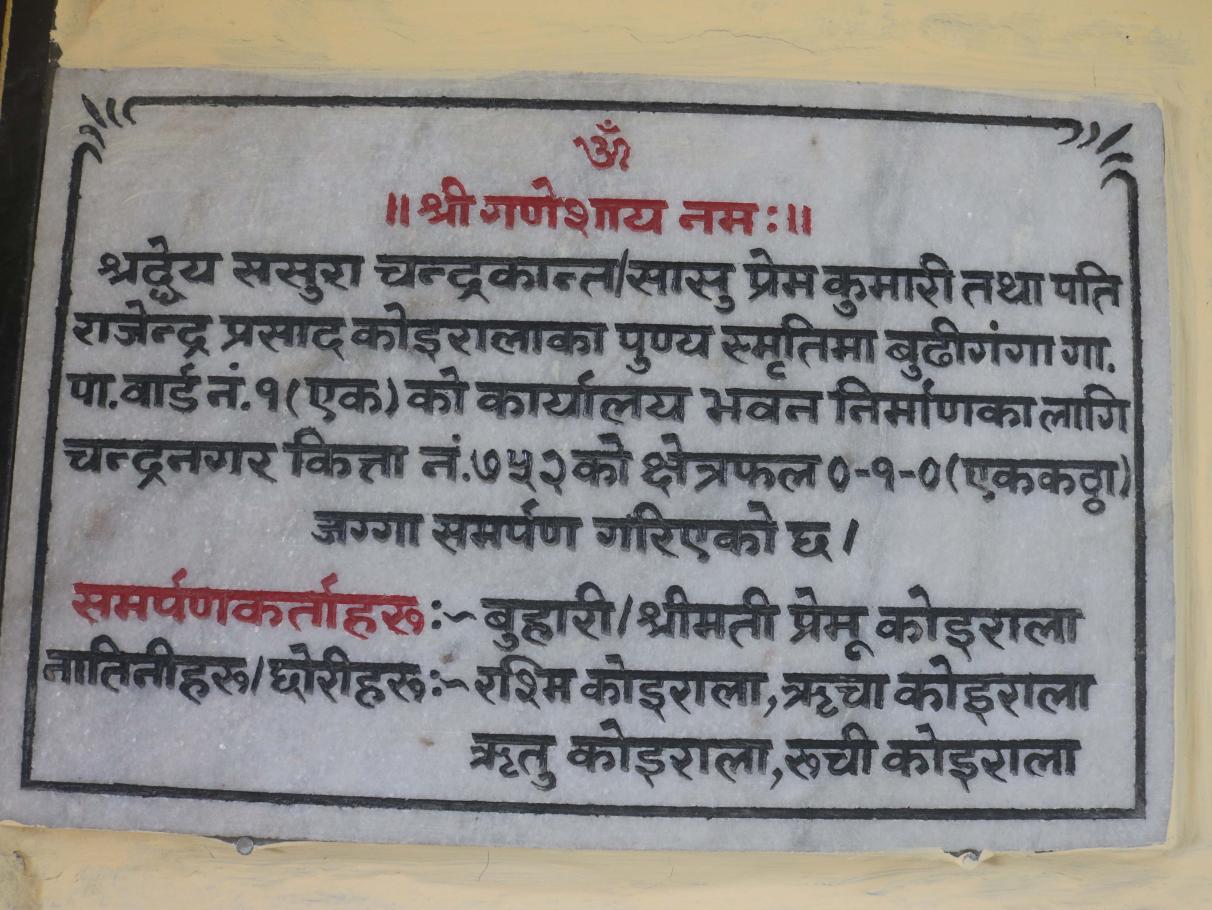 ॐ
॥ श्री गणेशाय नमः॥
श्रद्धेय ससुरा चन्द्रकान्त/सासु प्रेम कुमारी तथा पति
राजेन्द्र प्रसाद कोइरालाका पुण्य स्मृतिमा बुढीगंगा गा.
पा. वार्ड नं. १ (एक) को कार्यालय भवन निर्माणका लागि
चन्द्रनगर कित्ता नं. ७५२ को क्षेत्रफल ०-१-० (एक कठ्ठा)
जग्गा समर्पण गरिएको छ।
समर्पणकर्ताहरू :- बुहारी/श्रीमती प्रेमू कोइराला
नातिनीहरू/छोरीहरू :- रश्मि कोइराला, ऋचा कोइराला
ऋतु कोइराला, रूची कोइराला